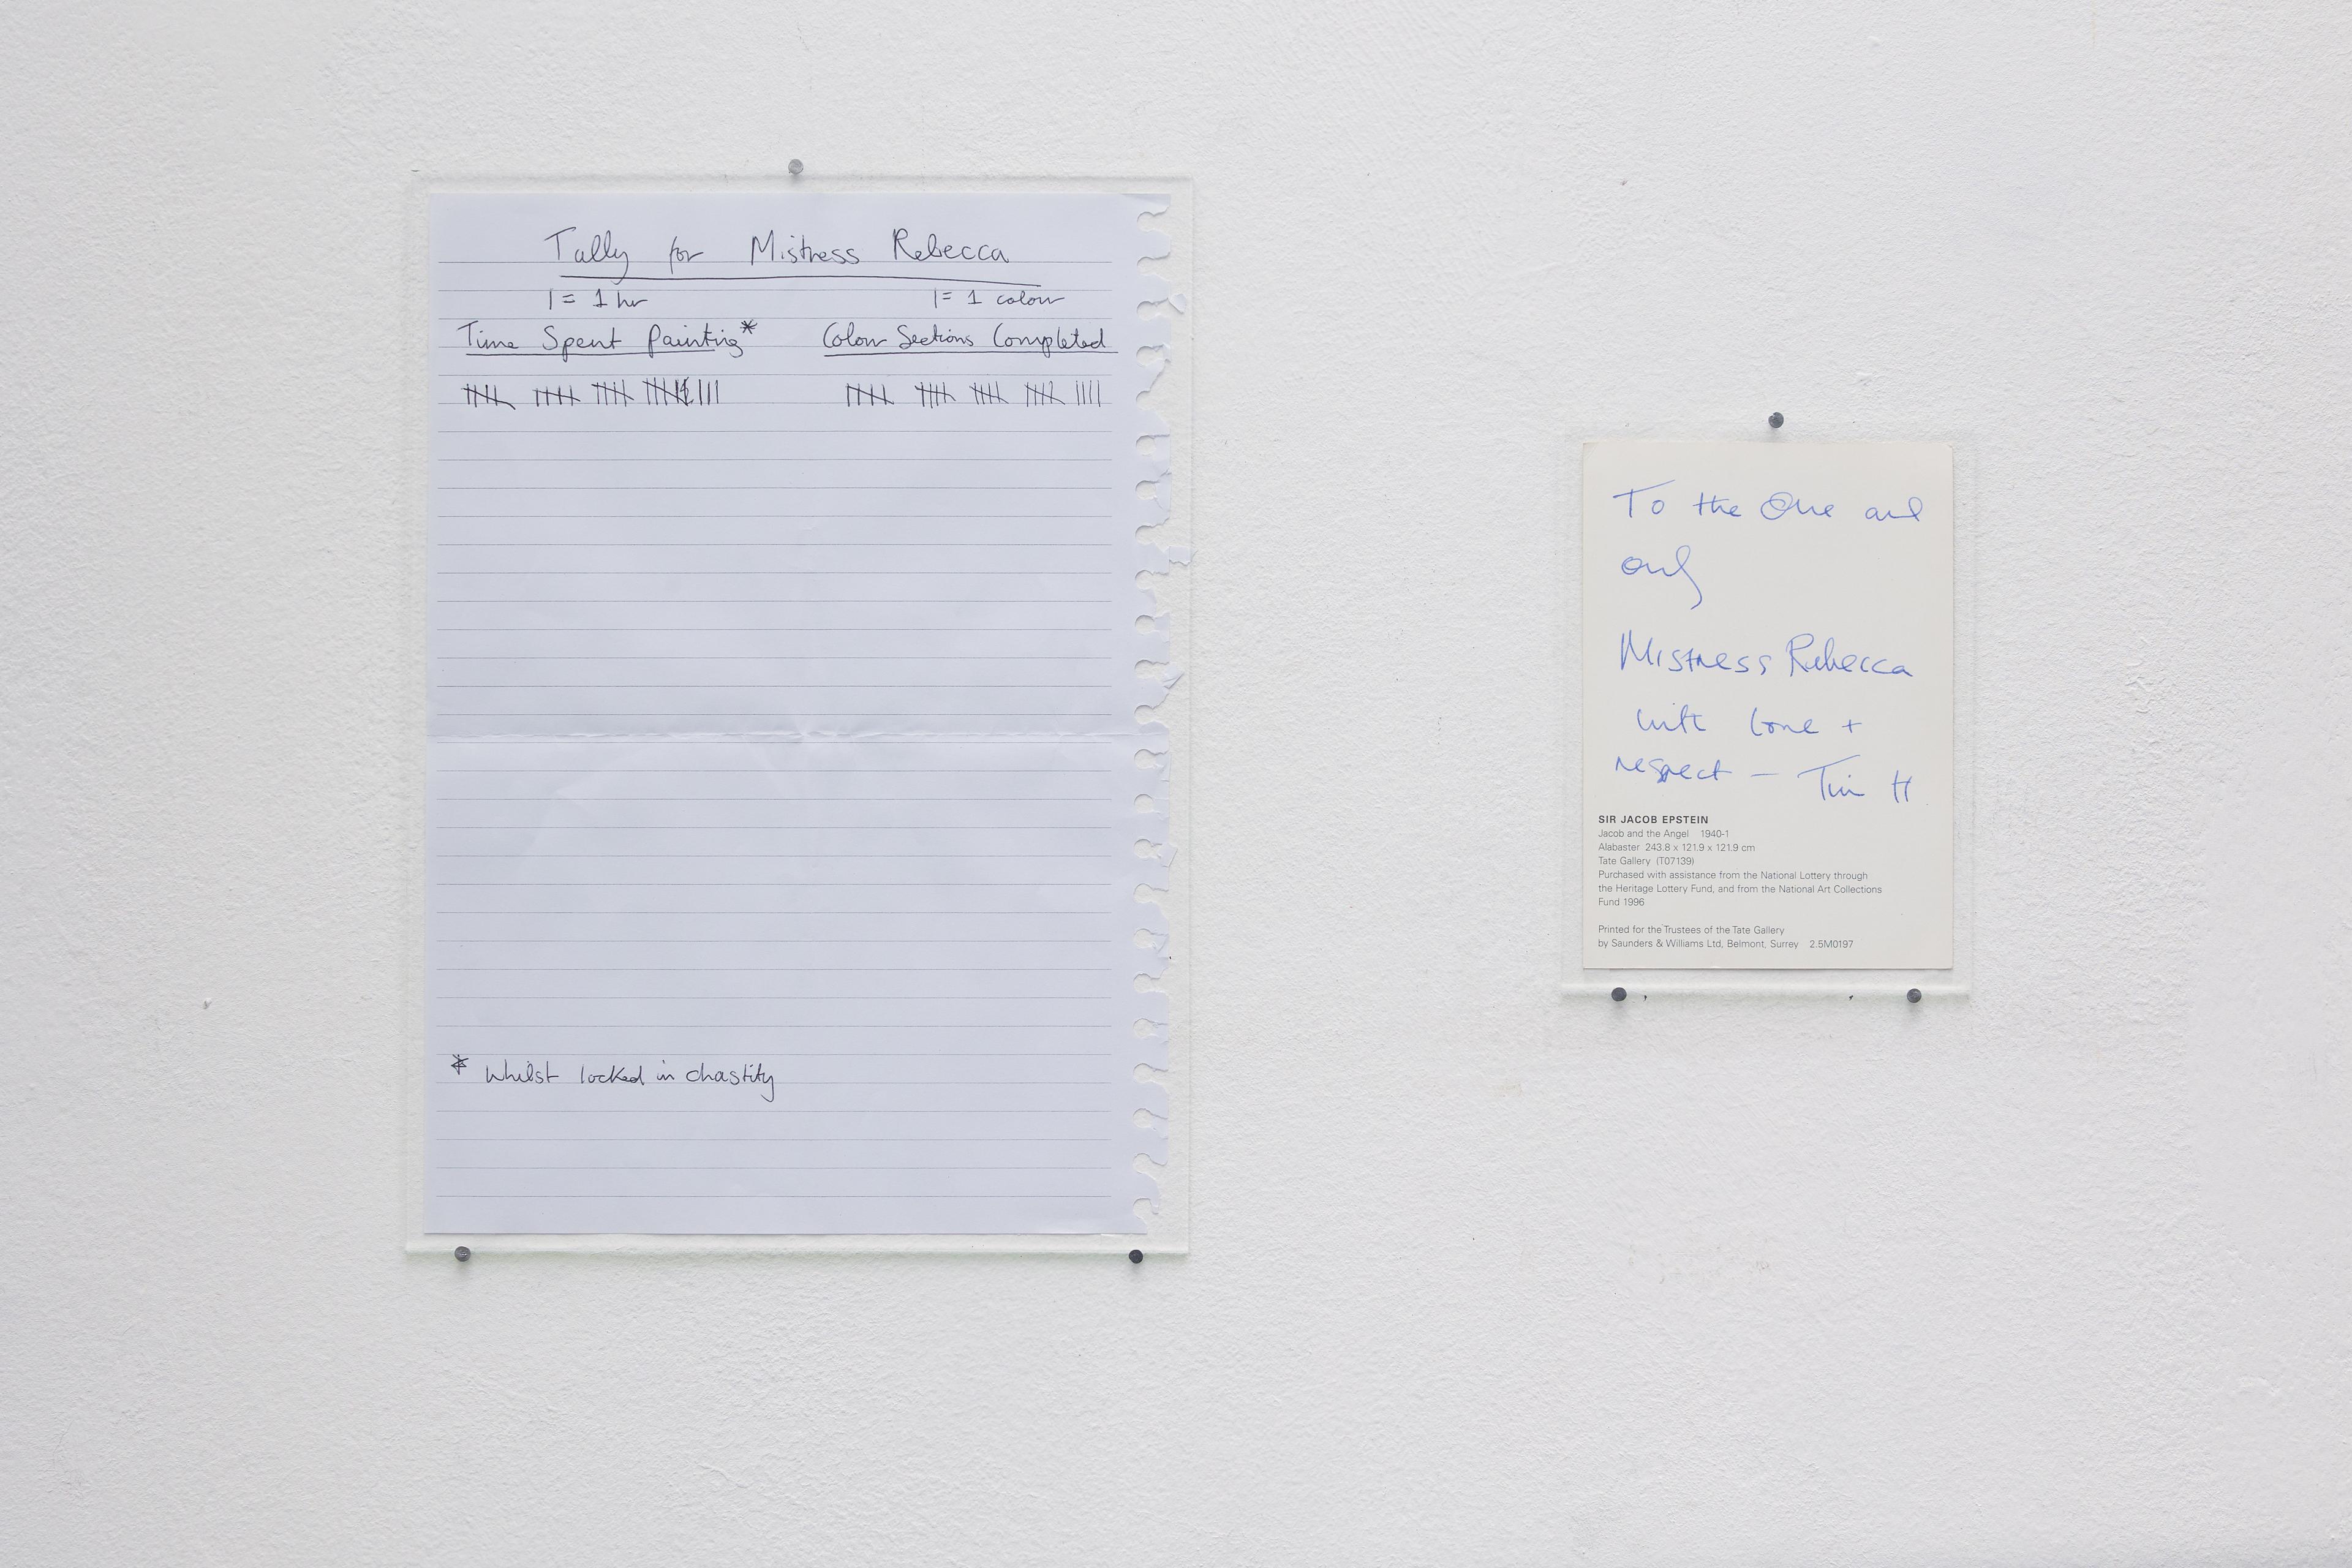 Tally for Mistress Rebecca
| = 1 hr | = 1 colour
Time Spent Painting* Colour Sections Completed
* Whilst locked in chastity
To the One and
only
Mistress Rebecca
with love +
respect — Tim H
SIR JACOB EPSTEIN
Jacob and the Angel 1940-1
Alabaster 243.8 x 121.9 x 121.9 cm
Tate Gallery (T07139)
Purchased with assistance from the National Lottery through
the Heritage Lottery Fund, and from the National Art Collections
Fund 1996
Printed for the Trustees of the Tate Gallery
by Saunders & Williams Ltd, Belmont, Surrey 2.5M0197